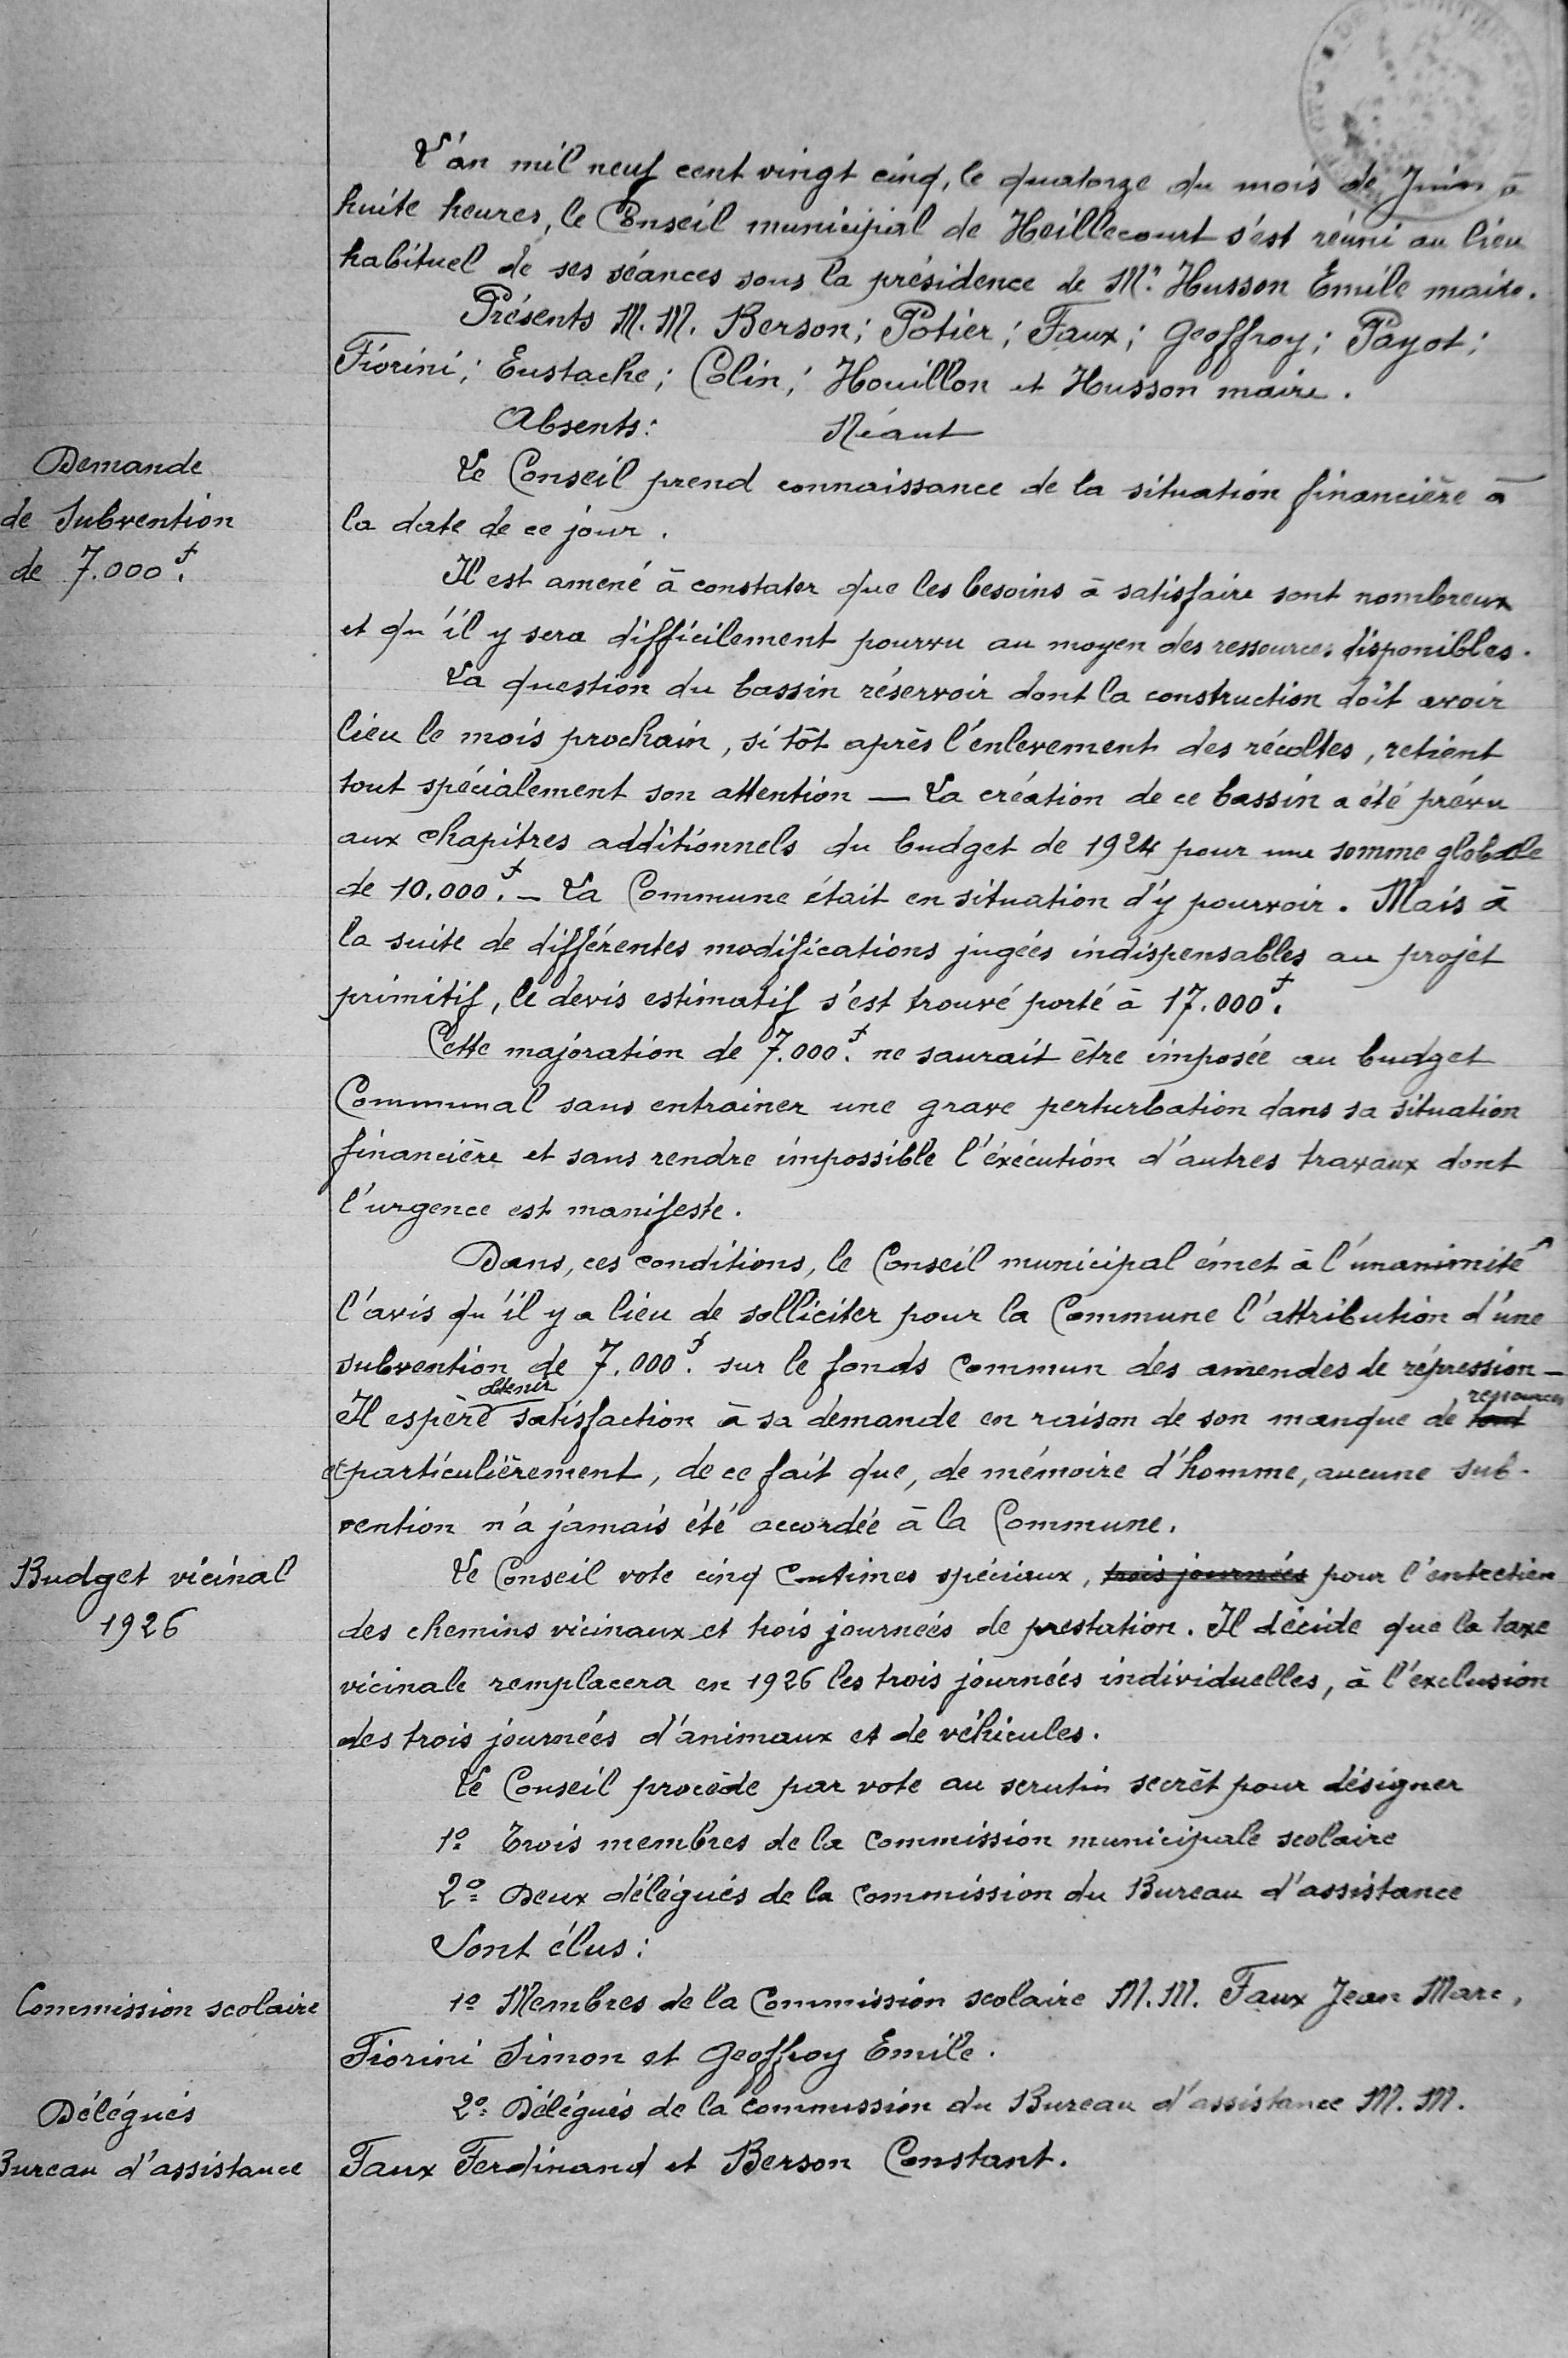 L'an mil neuf cent vingt cinq, le quatorze du mois de Juin à
huite heures, le Conseil municipal de Heillecourt s'est réuni au lieu
habituel de ses séances sous la présidence de Mr. Husson Emile maire.
Présents M. M. Berson; Potier; Faux; Geoffroy; Payot;
Fiorini; Eustache; Colin; Houillon et Husson maire.
Absents: Néant
Demande
de Subvention
de 7.000f.
Le Conseil prend connaissance de la situation financière à
la date de ce jour.
Il est amené à constater que les besoins à satisfaire sont nombreux
et qu'il y sera difficilement pourvu au moyen des ressources disponibles.
La question du bassin réservoir dont la construction doit avoir
lieu le mois prochain, si tôt après l'enlevement des récoltes, retient
tout spécialement son attention — La création de ce bassin a été prévu
aux chapitres additionnels du budget de 1924 pour une somme globale
de 10.000f. — La Commune était en situation d'y pourvoir. Mais à
la suite de différentes modifications jugées indispensables au projet
primitif, le devis estimatif s'est trouvé porté à 17.000f.
Cette majoration de 7.000f. ne saurait être imposée au budget
Communal sans entrainer une grave perturbation dans sa situation
financière et sans rendre impossible l'éxécution d'autres travaux dont
l'urgence est manifeste.
Dans, ces conditions, le Conseil municipal émet à l'unanimité
l'avis qu'il y a lieu de solliciter pour la Commune l'attribution d'une
subvention de 7.000f. sur le fonds commun des amendes de répression —
Il espère obtenir satisfaction à sa demande en raison de son manque de ressources
et particulièrement, de ce fait que, de mémoire d'homme, aucune sub-
vention n'a jamais été accordée à la Commune.
Budget vicinal
1926
Le Conseil vote cinq Centimes spéciaux, trois journées pour l'entretien
des chemins vicinaux et trois journées de prestation. Il décide que la taxe
vicinale remplacera en 1926 les trois journées individuelles, à l'exclusion
des trois journées d'animaux et de véhicules.
Le Conseil procède par vote au scrutin secrèt pour désigner
1o Trois membres de la commission municipale scolaire
2o Deux délégués de la commission du Bureau d'assistance
Sont élus:
Commission scolaire
1o Membres de la Commission scolaire M.M. Faux Jean Marc,
Fiorini Simon et Geoffroy Emile.
Délégués
Bureau d'assistance
2o Délégués de la commission du Bureau d'assistance M.M.
Faux Ferdinand et Berson Constant.